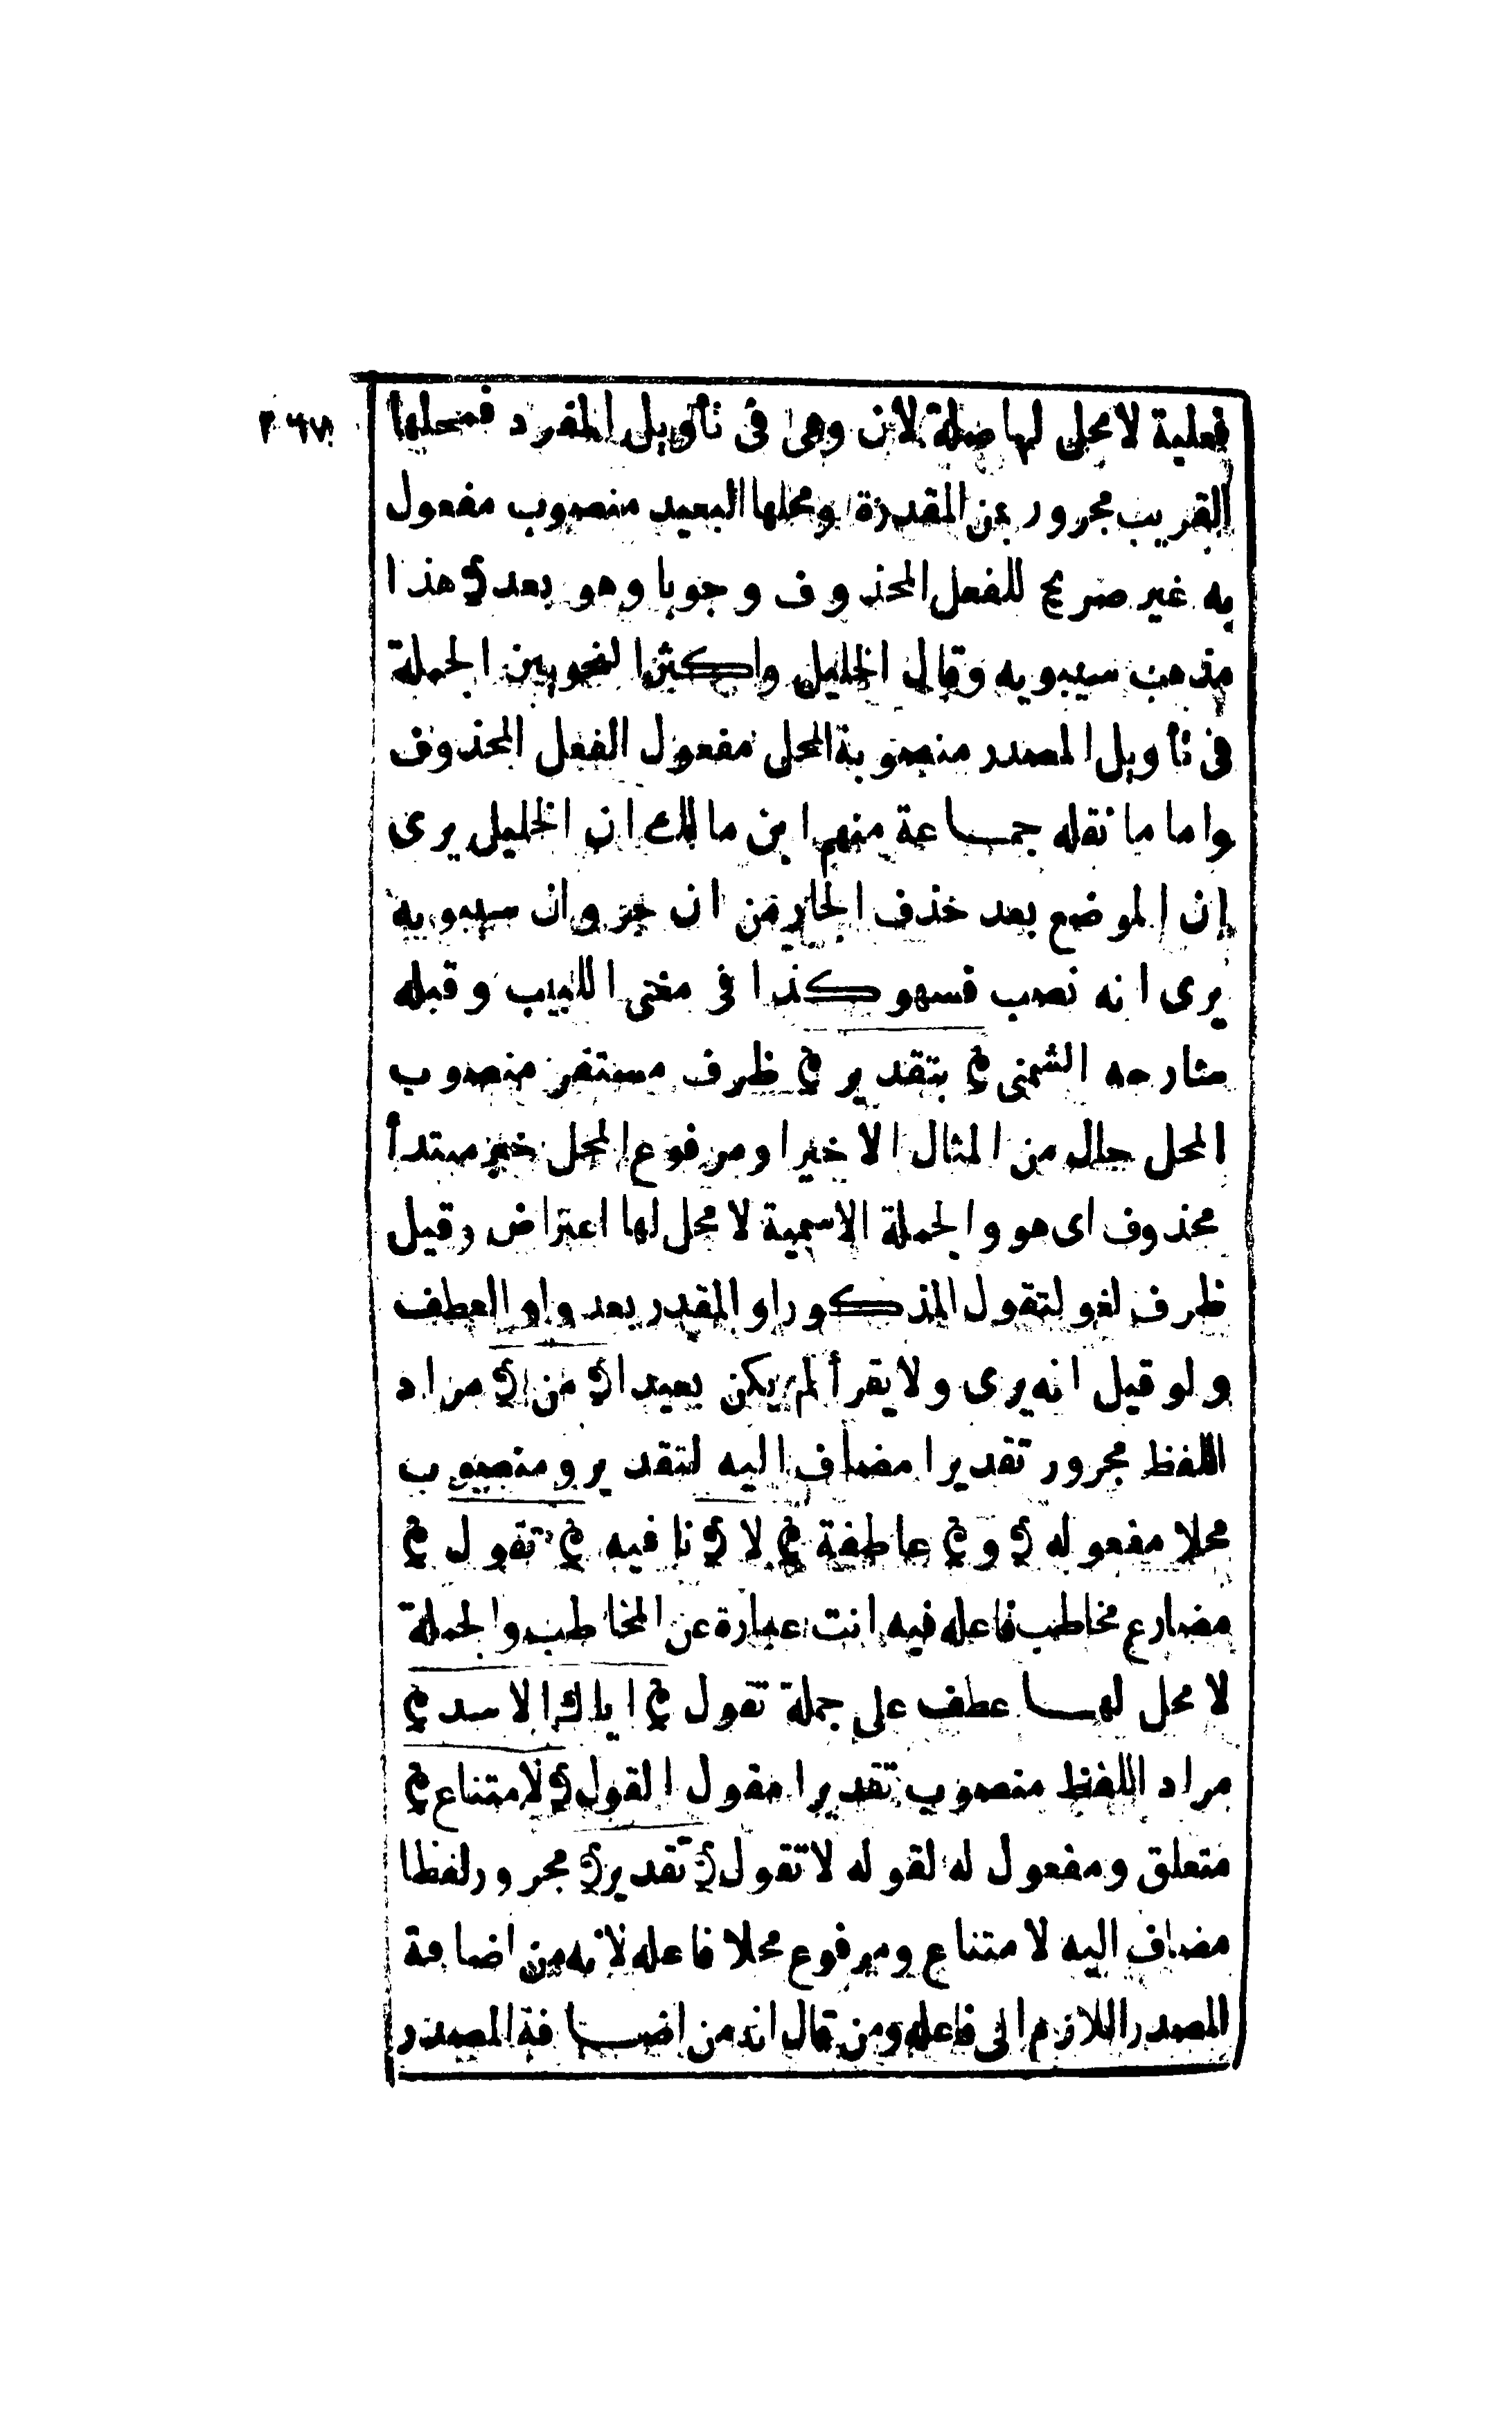 ٢٦٧
فعلية لا محل لها صلة لان وهى فى تأويل المفرد فمحلها
القريب مجرور بمن المقدرة ومحلها البعيد منصوب مفعول
به غير صريح للفعل المحذوف وجوبا وهو بعد ﴾ هذا
مذهب سيبويه وقال الخليل واكثر النحويين الجملة
فى تأويل المصدر منصوبة المحل مفعول الفعل المحذوف
واما ما نقله جماعة منهم ابن مالك ان الخليل يرى
ان الموضع بعد حذف الجار من ان جر وان سيبويه
يرى انه نصب فسهو كذا فى مغنى اللبيب وقبله
شارحه الشمنى ﴿ بتقدير ﴾ ظرف مستقر منصوب
المحل حال من المثال الاخير او مرفوع المحل خبر مبتدأ
محذوف اى هو والجملة الاسمية لا محل لها اعتراض وقيل
ظرف لغو لتقول المذكور او المقدر بعد واو العطف
ولو قيل انه يرى ولا يقرأ لم يكن بعيدا ﴿ من ﴾ مراد
اللفظ مجرور تقديرا مضاف اليه لتقدير ومنصوب
محلا مفعوله ﴿ و ﴾ عاطفة ﴿ لا ﴾ نافيه ﴿ تقول ﴾
مضارع مخاطب فاعله فيه انت عبارة عن المخاطب والجملة
لا محل لها عطف على جملة تقول ﴿ اياك الاسد ﴾
مراد اللفظ منصوب تقديرا مقول القول ﴿ لامتناع ﴾
متعلق ومفعول له لقوله لا تقول ﴿ تقدير ﴾ مجرور لفظا
مضاف اليه لامتناع ومرفوع محلا فاعله لانه من اضافة
المصدر اللازم الى فاعله ومن قال انه من اضافة المصدر